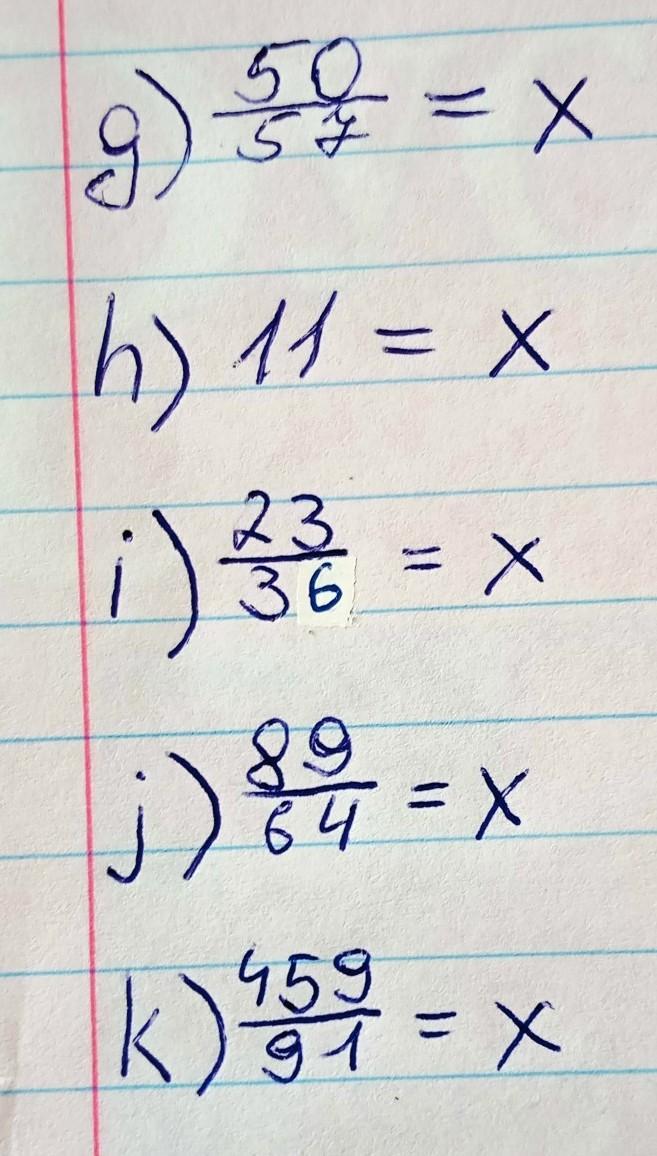 g) 50/57 = x
h) 11 = x
i) 23/36 = x
j) 89/64 = x
k) 459/91 = x